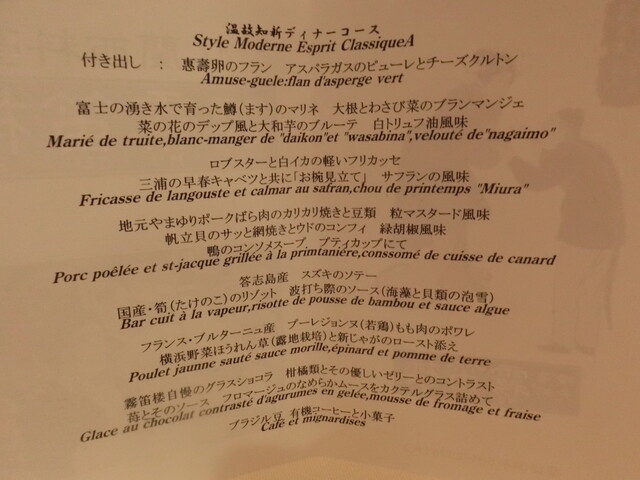 温故知新ディナーコース
Style Moderne Esprit ClassiqueA
付き出し ： 恵壽卵のフラン アスパラガスのピューレとチーズクルトン
Amuse-guele:flan d'asperge vert
富士の湧き水で育った鱒(ます)のマリネ 大根とわさび菜のブランマンジェ
菜の花のデップ風と大和芋のブルーテ 白トリュフ油風味
Marié de truite,blanc-manger de "daikon"et "wasabina",velouté de"nagaimo"
ロブスターと白イカの軽いフリカッセ
三浦の早春キャベツと共に「お椀見立て」 サフランの風味
Fricasse de langouste et calmar au safran,chou de printemps "Miura"
地元やまゆりポークばら肉のカリカリ焼きと豆類 粒マスタード風味
帆立貝のサッと網焼きとウドのコンフィ 緑胡椒風味
鴨のコンソメスープ プティカップにて
Porc poêlée et st-jacque grillée à la primtanière,conssomé de cuisse de canard
答志島産 スズキのソテー
国産・筍(たけのこ)のリゾット 波打ち際のソース(海藻と貝類の泡雪)
Bar cuit à la vapeur,risotte de pousse de bambou et sauce algue
フランス・ブルターニュ産 プーレジョンヌ(若鶏)もも肉のポワレ
横浜野菜ほうれん草(露地栽培)と新じゃがのロースト添え
Poulet jaunne sauté sauce morille,épinard et pomme de terre
霧笛楼自慢のグラスショコラ 柑橘類とその優しいゼリーとのコントラスト
苺とそのソース フロマージュのなめらかムースをカクテルグラス詰めて
Glace au chocolat contrasté d'agurumes en gelée,mousse de fromage et fraise
ブラジル豆 有機コーヒーと小菓子
Café et mignardises